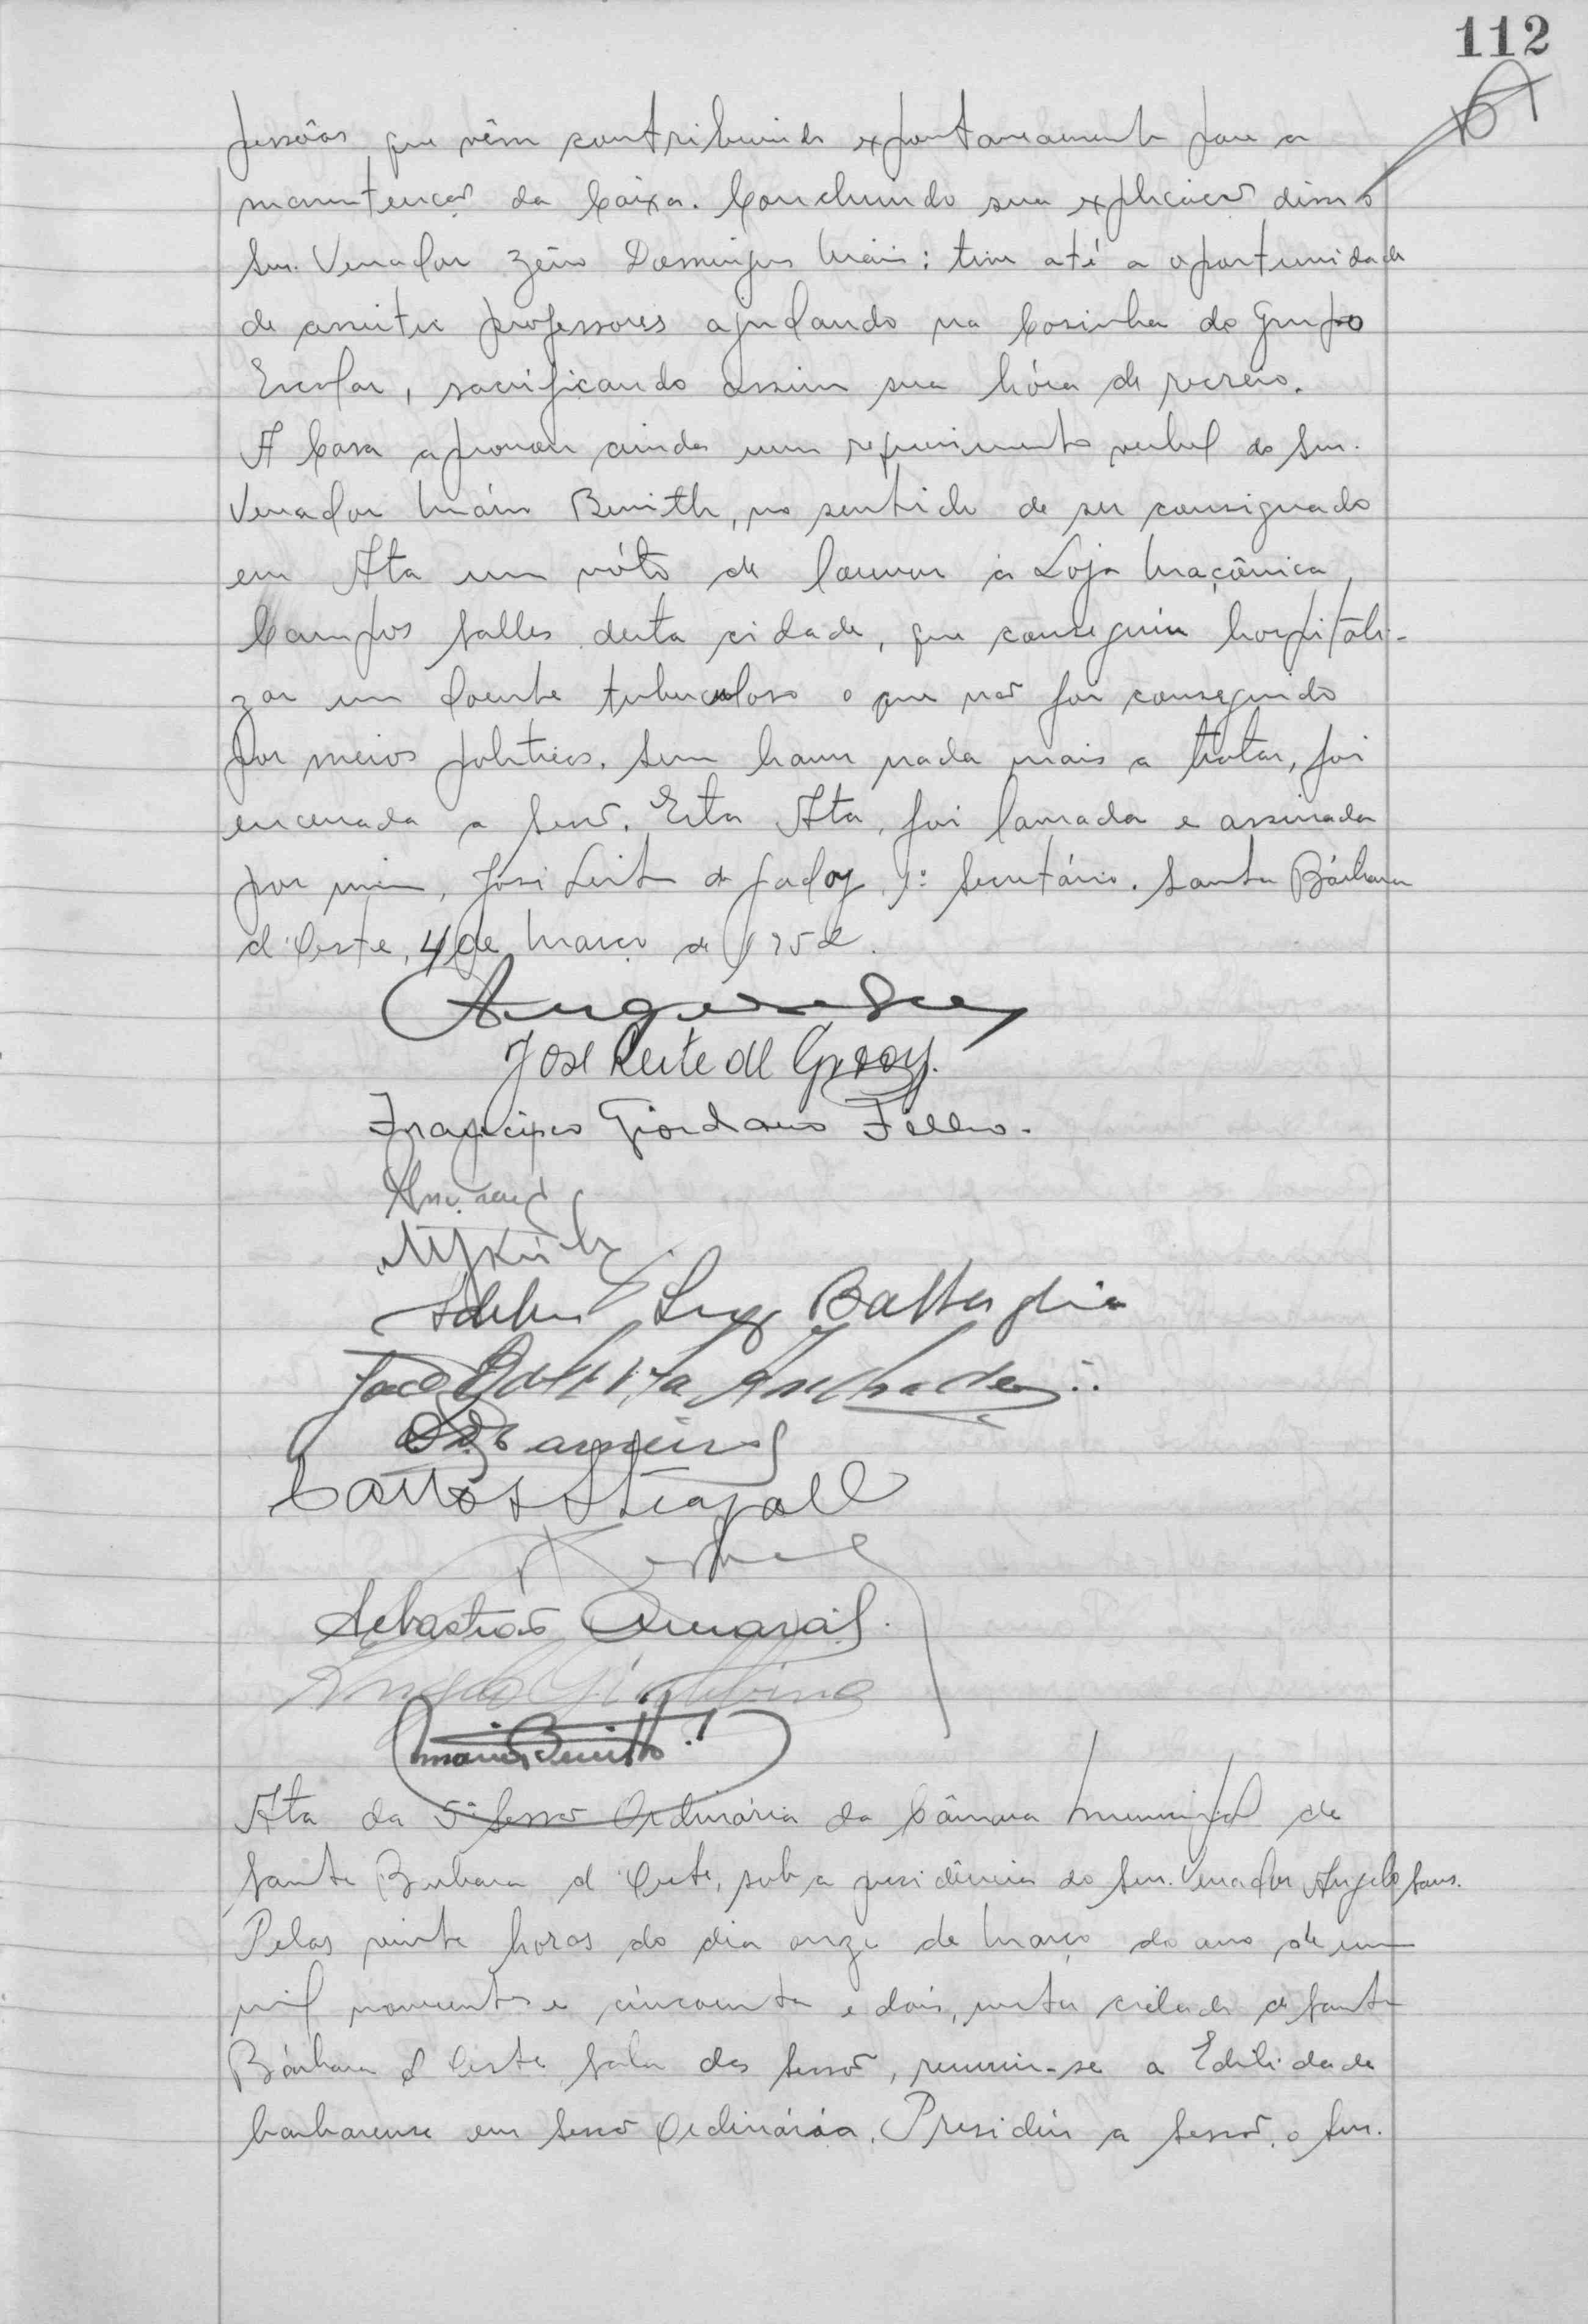 112
pessôas que vêm contribuindo expontaneamente para a
manutenção da Caixa. Concluindo sua explicação disse o
Snr. Vereador Zêno Domingos Maia: tive até a oportunidade
de assistir professores ajudando na Cosinha do Grupo
Escolar, sacrificando assim sua hóra de recreio.
A Casa aprovou ainda um requerimento verbal do Snr.
Vereador Mário Benith, no sentido de ser consignado
em Ata um vóto de louvor à Loja Maçônica
Campos Salles desta cidade, que conseguiu hospitali-
zar um doente tuberculoso o que não foi conseguido
por meios politicos. Sem haver nada mais a tratar, foi
encerrada a Sessão. Esta Ata, foi lavrada e assinada
por mim, José Leite de Godoy, 1º Secretário. Santa Bárbara
d'Oeste, 4 de Março de 1952.
José Leite de Godoy.
Francisco Giordano Filho.
Luiz Battaglia
Carlos Steagall
Sebastião Amaral
Angelo Giubbina
Mario Benith
Ata da 5ª Sessão Ordinária da Câmara Municipal de
Santa Barbara d'Oeste, sob a presidência do Snr. Vereador Angelo Sans.
Pelas vinte horas do dia onze de Março do ano de um
mil novecentos e cincoenta e dois, nesta cidade de Santa
Bárbara d'Oeste, sala das Sessão, reuniu-se a Edilidade
barbarense em Sessão Ordinária. Presidiu a Sessão, o Snr.